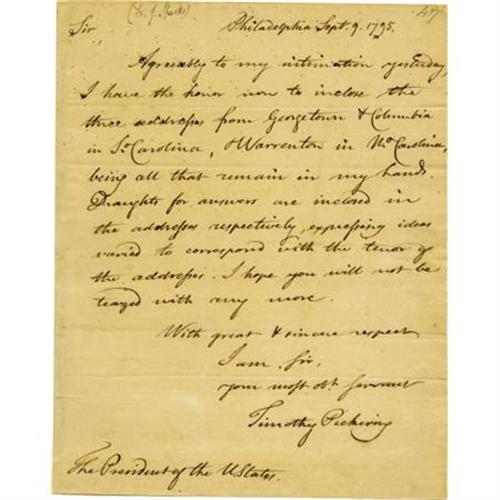 Sir Philadelphia Sept. 9. 1795.
Agreeably to my intimation yesterday,
I have the honor now to inclose the
three addresses from Georgetown & Columbia
in So. Carolina, & Warrenton in No. Carolina,
being all that remain in my hands.
Draughts for answers are inclosed in
the addresses respectively, expressing ideas
varied to correspond with the tenor of
the addresses. I hope you will not be
teazed with any more.
With great & sincere respect
I am, Sir,
your most obt. servant
Timothy Pickering
The President of the U States.